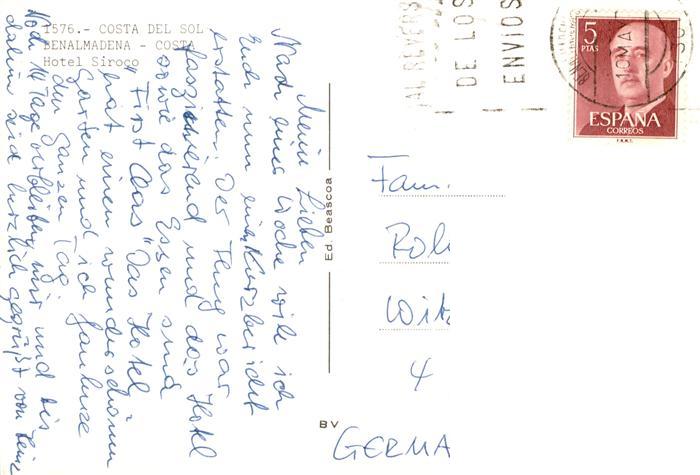 1576.- COSTA DEL SOL
BENALMADENA - COSTA
Hotel Siroco
Meine Lieben
Nach einer Woche will ich
Euch nun einen Kurzbericht
erstatten. Der Flug war
faszinierend und das Hotel
sowie das Essen sind
"First Class" Das Hotel
hat einen wunderschönen
Garten und ich faulenze
den ganzen Tag.
Noch 14 Tage verbleiben mir und bis
dahin seid herzlich gegrüßt von
Ed. Beascoa
BV
AL REVERS
DE LOS
ENVIOS
10 MA
5
PTAS
ESPAÑA
CORREOS
F.N.M.T.
Fam.
Rol
Wit
4
GERMA